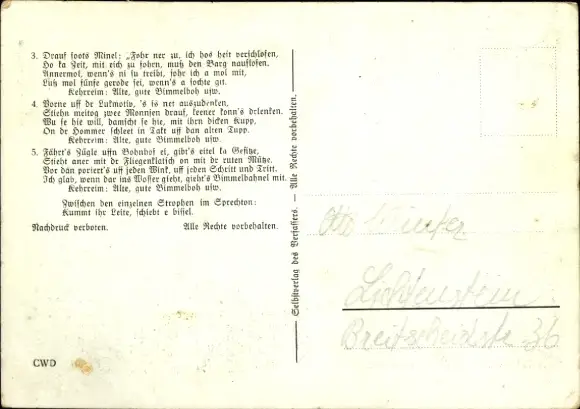 3. Drauf soots Minel: „Fohr ner zu, ich hos heit verschlofen,
Ho ka Zeit, mit eich zu fohrn, muß den Barg nauflofen.
Annermol, wenn's ni su treibt, fohr ich a mol mit,
Luß mol fünfe gerode sei, wenn's a sochte git.
Kehrreim: Alte, gute Bimmelboh usw.
4. Vorne uff dr Lukmotiv, 's is net auszudenken,
Stiehn meitog zwee Monnsen drauf, keener konn's drlenken.
Wu se hie will, damischt se hie, mit ihrn dicken Kupp,
On de Hommer schleet in Takt uff dan alten Tupp.
Kehrreim: Alte, gute Bimmelboh usw.
5. Fährt's Zügle uffn Bohnhof ei, gibt's eitel ka Gefitze,
Stieht aner mit dr Fliegenklatsch on mit dr ruten Mütze.
Vor dan poriert's uff jeden Wink, uff jeden Schritt und Tritt.
Ich glab, wenn dar ins Wosser gieht, gieht's Bimmelbahnel mit.
Kehrreim: Alte, gute Bimmelboh usw.
Zwischen den einzelnen Strophen im Sprechton:
Kummt ihr Leite, schiebt e bissel.
Nachdruck verboten. Alle Rechte vorbehalten.
CWD
Selbstverlag des Verfassers. — Alle Rechte vorbehalten.
Lichtenstein
Breitscheidstr. 36